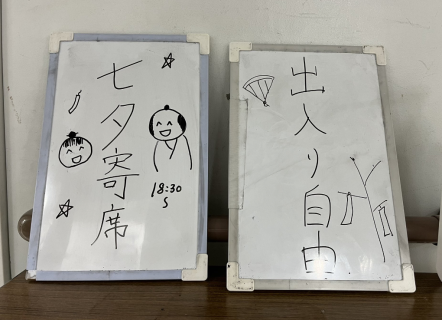 七夕寄席
18:30
S
出入り自由